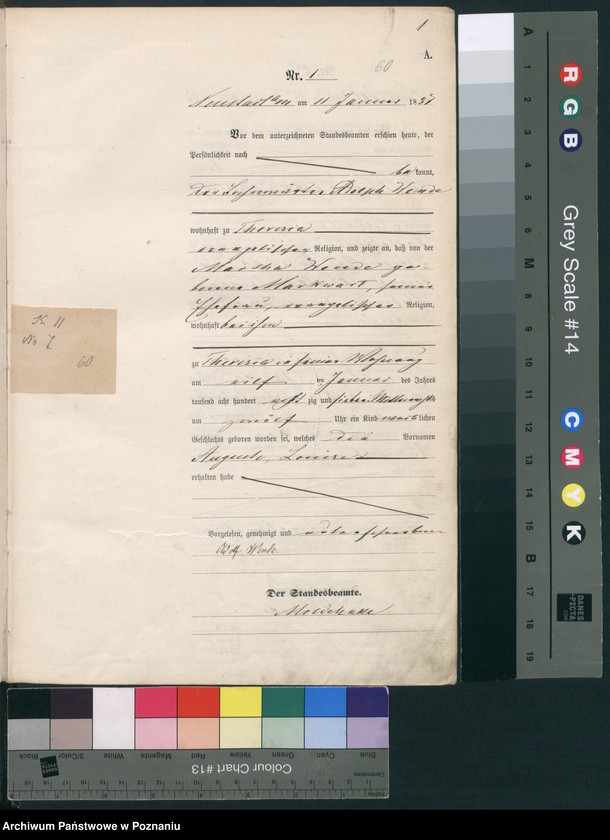 1
A.
60
Nr. 1
am 11 Januar 1887
Vor dem unterzeichneten Standesbeamten erschien heute, der
Persönlichkeit nach
bekannt,
der Adolph Wende
wohnhaft zu Theresia
evangelischer Religion, und zeigte an, daß von der
Martha Wende ge-
borene Markwart, seiner
Ehefrau, evangelischer Religion,
wohnhaft bei ihm
zu Theresia in seiner Wohnung
am elf ten Januar des Jahres
tausend acht hundert acht zig und sieben Mittags
um zwölf Uhr ein Kind weiblichen
Geschlechts geboren worden sei, welches die Vornamen
Auguste, Louise
erhalten habe
Vorgelesen, genehmigt und unterschrieben
Adolf Wende
Der Standesbeamte.
K 11
No 7
60
A 1 2 3 4 5 6 M 8 9 10 11 12 13 14 15 B 17 18 19
R G B
Grey Scale #14
C M Y K
DANES
-PICTA
.COM
Colour Chart #13
Blue Cyan Green Yellow Red Magenta White 3/Color Black
Centimetres
Inches
Archiwum Państwowe w Poznaniu